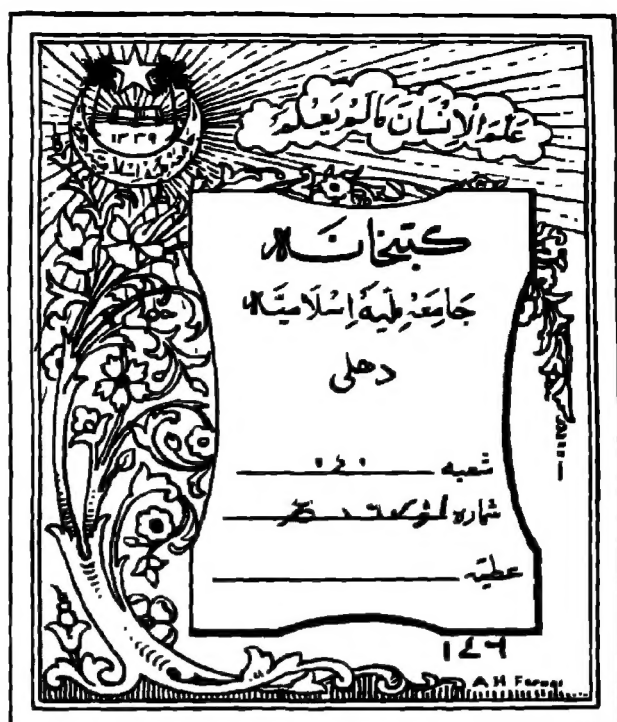 عَلَّمَ الْإِنْسَانَ مَا لَمْ يَعْلَمْ
١٣٣٩
کتبخانہ
جَامِعَہ مِلّیَہ اِسْلَامِیَہ
دهلی
شعبہ
شمارہ
عطیہ
١٤٦
A H Faruqi